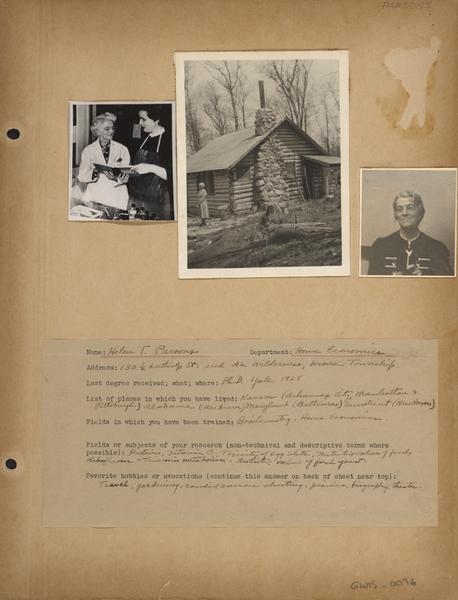 PARSONS
Name: Helen T. Parsons Department: Home Economics
Address: 150 ½ St. and Wilderness, Township.
Last degree received; what; where: Ph.D. Yale 1928
List of places in which you have lived: Kansas (Arkansas City, Manhattan &
Pittsburgh) Alabama (Auburn) Maryland (Baltimore) Connecticut (New Haven)
Fields in which you have been trained: Biochemistry, Home Economics
Fields or subjects of your research (non-technical and descriptive terms where
possible): Proteins, Vitamin C, Toxicity of egg white, Nutritive value of foods
Riboflavin + Thiamin metabolism. Nutritive value of fresh yeast.
Favorite hobbies or avocations (continue this answer on back of sheet near top):
Travel, gardening, candid camera shooting, biography, theater
GWIS-0096